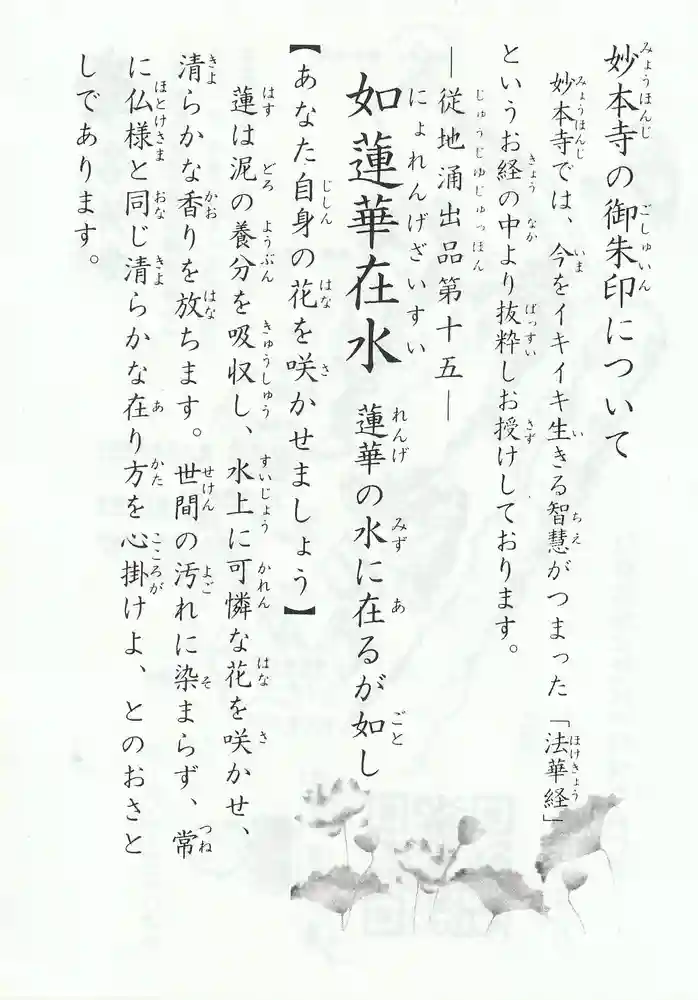 妙本寺の御朱印について
妙本寺では、今をイキイキ生きる智慧がつまった「法華経」
というお経の中より抜粋しお授けしております。
―従地涌出品第十五―
如蓮華在水 蓮華の水に在るが如し
【あなた自身の花を咲かせましょう】
蓮は泥の養分を吸収し、水上に可憐な花を咲かせ、
清らかな香りを放ちます。世間の汚れに染まらず、常
に仏様と同じ清らかな在り方を心掛けよ、とのおさと
しであります。